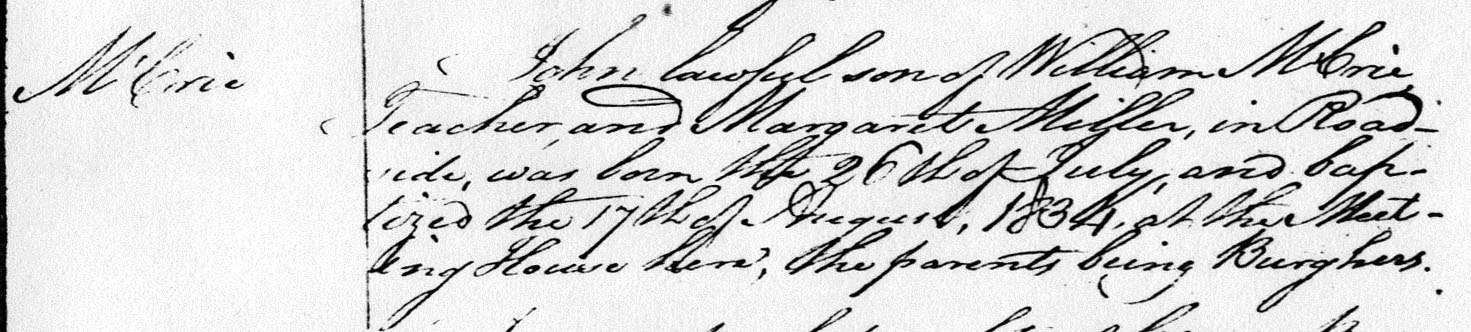 McCrie
John lawful son of William McCrie
Teacher, and Margaret Miller, in Road-
side, was born the 26th of July, and bap-
tized the 17th of August, 1834, at the Meet-
ing House here, the parents being Burghers.